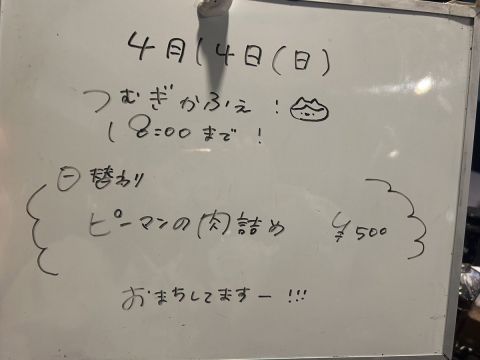 4月14日(日)
つむぎかふぇ!
18:00まで!
日替わり
ピーマンの肉詰め ¥500
おまちしてますー!!!